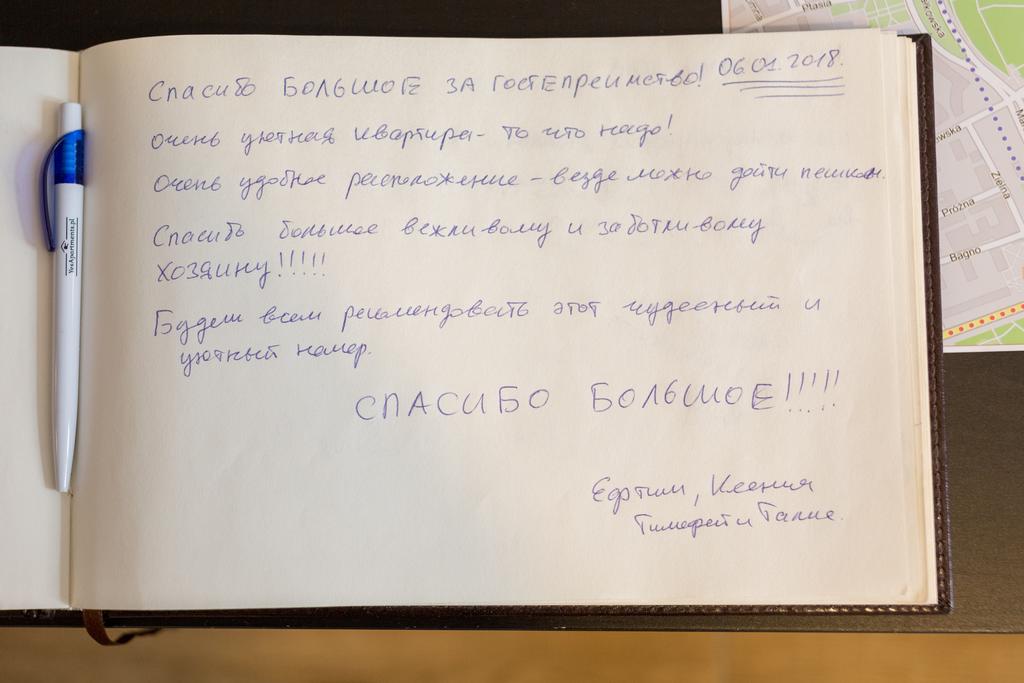 Спасибо БОЛЬШОЕ ЗА ГОСТЕПРЕИМСТВО! 06.01.2018.
Очень уютная квартира - то что надо!
Очень удобное расположение - везде можно дойти пешком.
Спасибо большое вежливому и заботливому
хозяину!!!!!
Будем всем рекомендовать этот чудесный и
уютный номер.
СПАСИБО БОЛЬШОЕ!!!!!
Ксения
Тимофей и
YesApartments.pl
Ptasia
Zielna
Próżna
Bagno